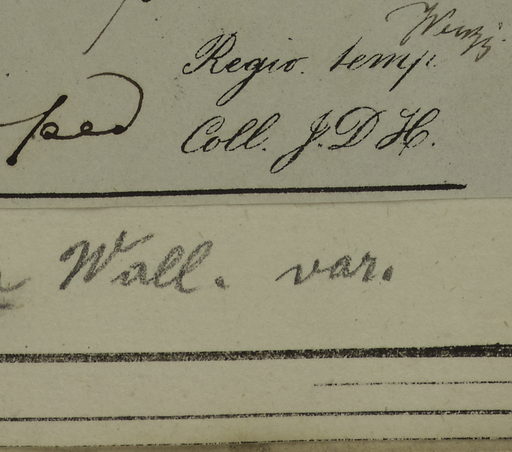 Regio. temp.
ped Coll. J. D H.
Wall. var.